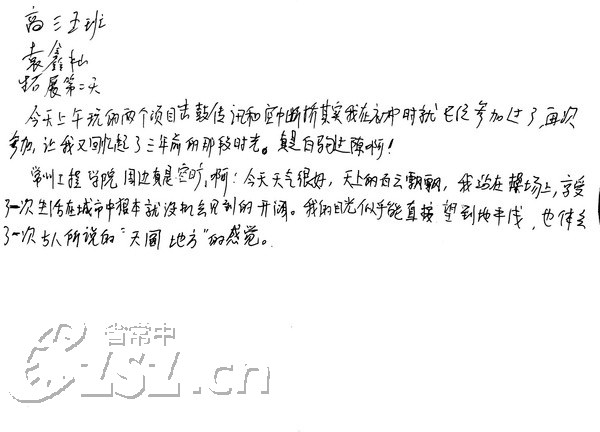 高三五班
袁鑫
拓展第二天
今天上午玩的两个项目击鼓传讯和空中断桥其实我在初中时就已经参加过了,再次
参加,让我又回忆起了三年前的那段时光。真是白驹过隙啊!
常州工程学院周边真是空旷,啊!今天天气很好,天上的白云飘飘,我站在操场上,享受
了一次生活在城市中根本就没机会见到的开阔。我的目光似乎能直接望到地平线,也体会
了一次古人所说的“天圆地方”的感觉。
省常中
CZSZ.cn